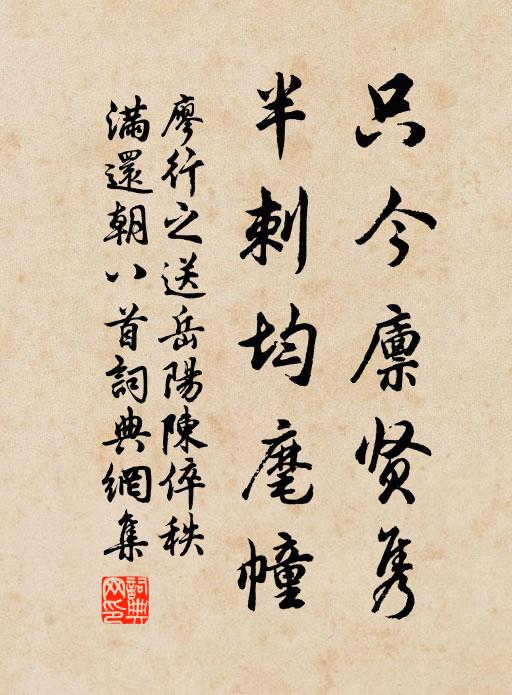 只今廪贤隽
半刺均麾幢
廖行之送岳陽陳倅秩
滿還朝八首詞典網集
詞典网印